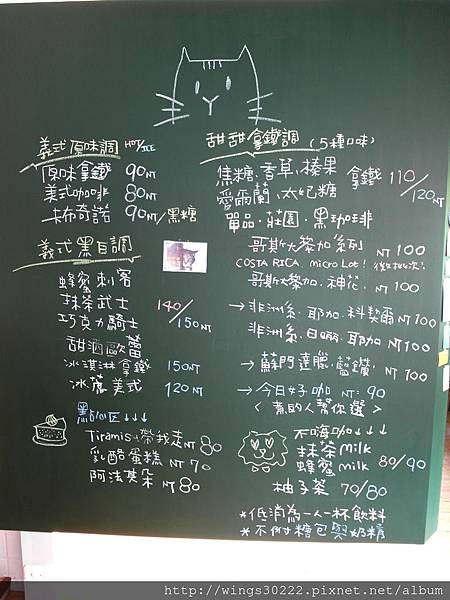 義式原味調 HOT/ICE
原味拿鐵 90NT
美式咖啡 80NT
卡布奇諾 90NT/黑糖
義式黑白調
蜂蜜刺客
抹茶武士 140/150NT
巧克力騎士
甜酒歐蕾
冰淇淋拿鐵 150NT
冰落美式 120NT
黑點心區↓↓↓
Tiramis 帶我走 NT 80
乳酪蛋糕 NT 70
阿法其朵 NT 80
甜甜拿鐵調 (5種口味)
焦糖.香草.榛果 拿鐵 110/120NT
愛爾蘭.太妃糖
單品.莊園.黑咖啡
哥斯大黎加系列 NT 100
COSTA RICA. micro Lot! (微批次)
哥斯大黎加.神花. NT 100
→非洲系.耶加.科契爾 NT 100
非洲系.日曬.耶加 NT 100
→蘇門達臘.藍鑽. NT 100
→今日好咖 NT: 90
<煮的人幫你選>
不嗨咖↓↓↓
抹茶milk
蜂蜜milk 80/90
柚子茶 70/80
*低消為一人一杯飲料
*不附糖包與奶精
http://wings30222.pixnet.net/album